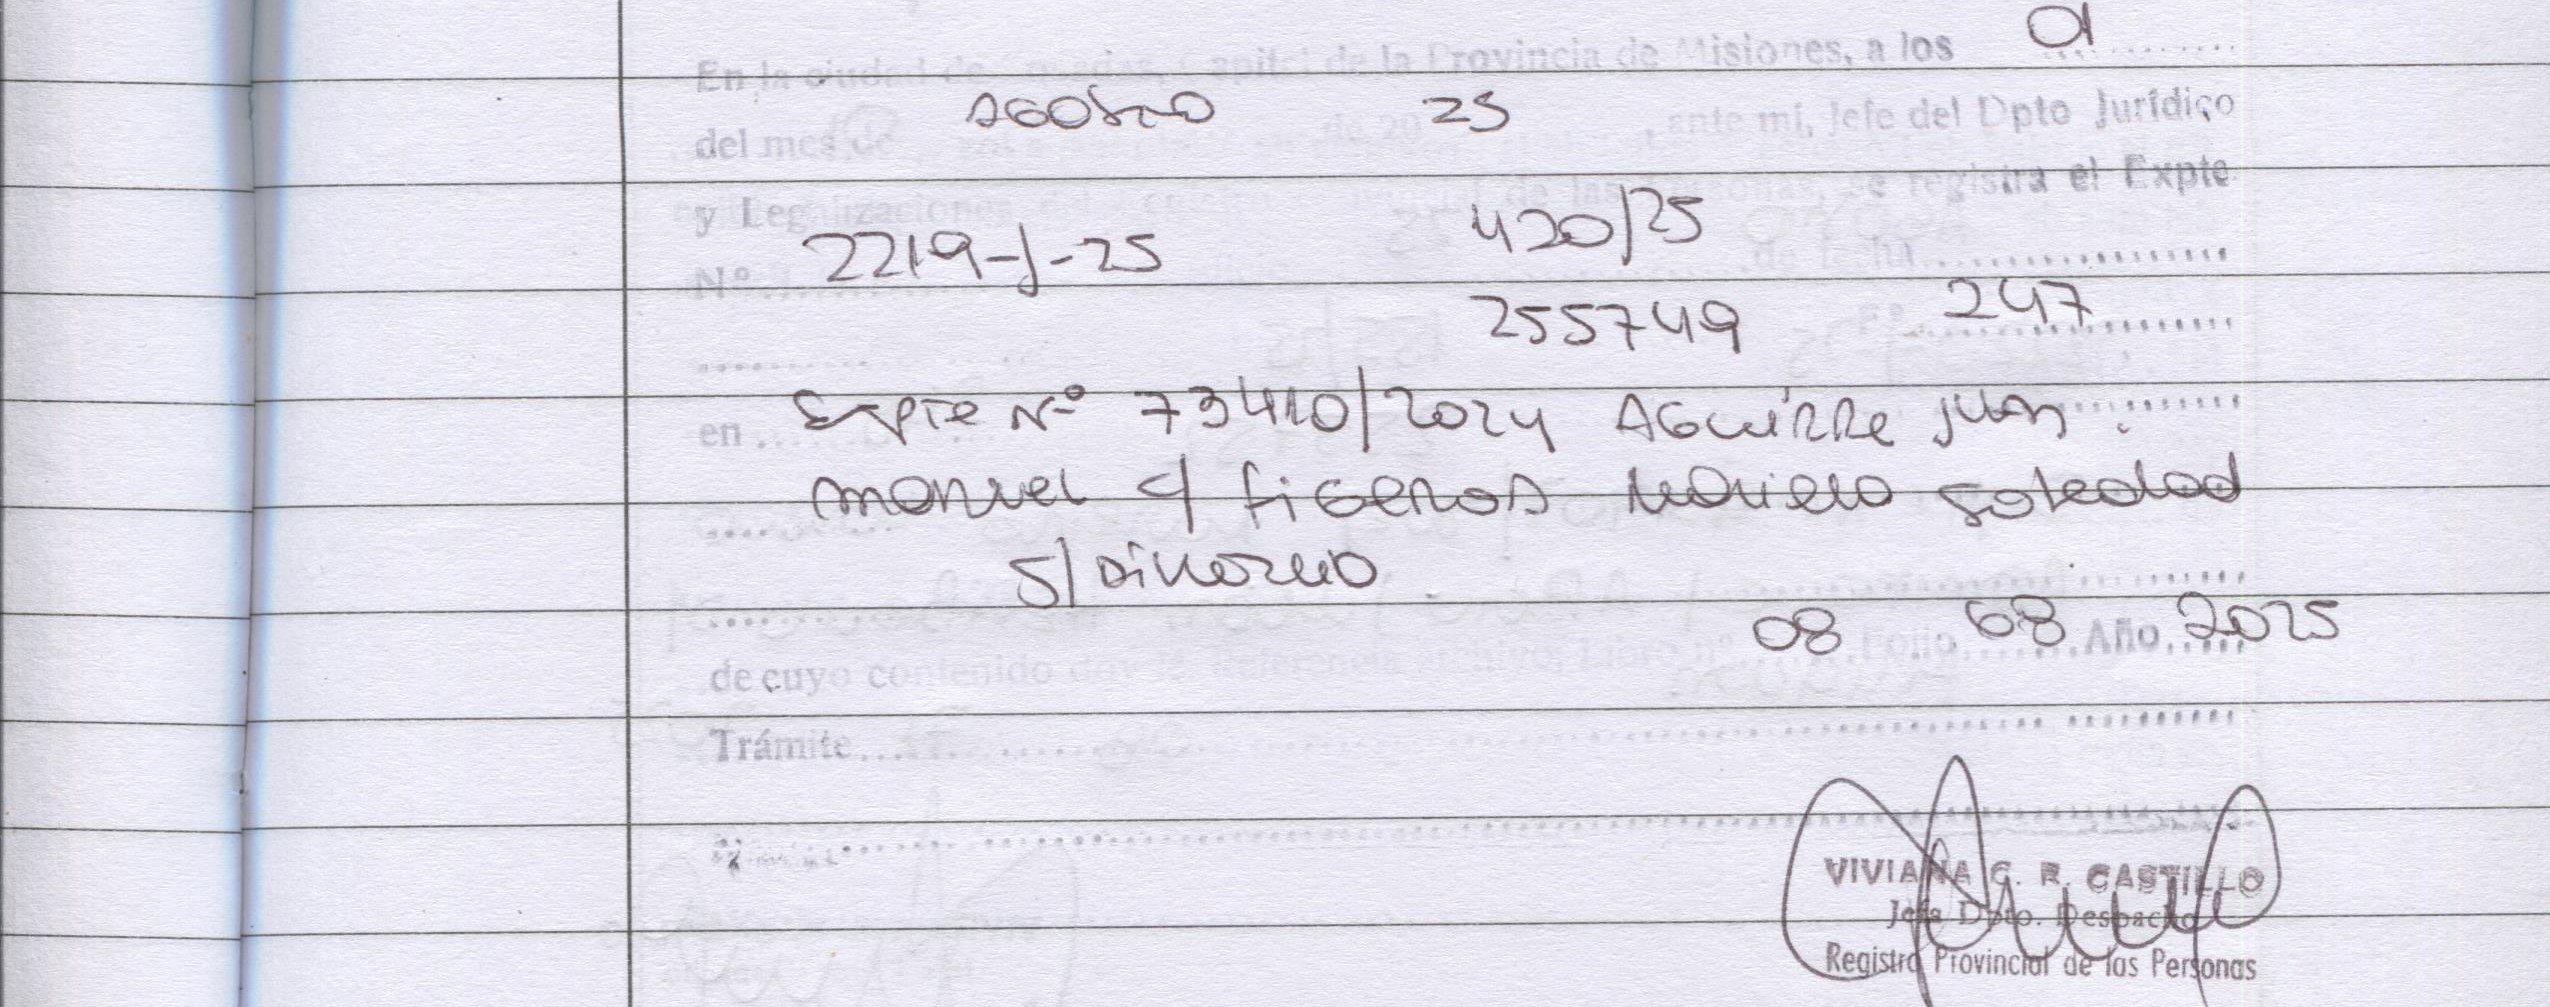 En la ciudad de Posadas, Capital de la Provincia de Misiones, a los 01
del mes de AGOSTO de 20 25, ante mí, Jefe del Dpto Jurídico
y Legalizaciones de las Personas, se registra el Expte
Nº 2219-J-25 420/25 de fecha
255749 Fº 247
en Expte Nº 73410/2024 Aguirre Juan
manuel c/ figeroa Mariela Soledad
s/ Divorcio
de cuyo contenido Libro nº 08 Folio 68 Año 2025
Trámite
VIVIANA G. R. CASTILLO
Jefa Dpto. Despacho
Registro Provincial de las Personas